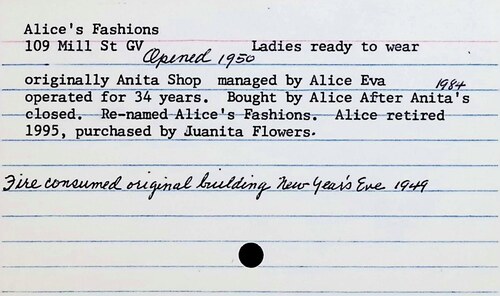 Alice's Fashions
109 Mill St GV Ladies ready to wear
Opened 1950
originally Anita Shop managed by Alice Eva 1984
operated for 34 years. Bought by Alice After Anita's
closed. Re-named Alice's Fashions. Alice retired
1995, purchased by Juanita Flowers.
Fire consumed original building New Year's Eve 1949